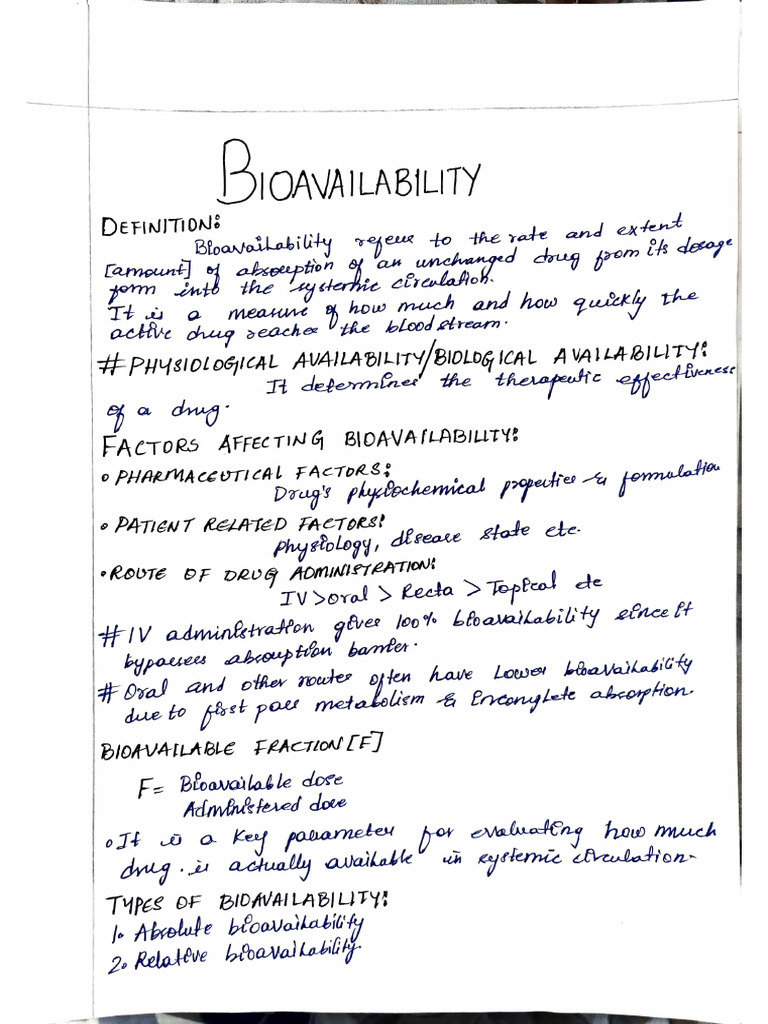 BIOAVAILABILITY
DEFINITION:
Bioavailability refers to the rate and extent
[amount] of absorption of an unchanged drug from its dosage
form into the systemic circulation.
It is a measure of how much and how quickly the
active drug reaches the bloodstream.
# PHYSIOLOGICAL AVAILABILITY/BIOLOGICAL AVAILABILITY:
It determines the therapeutic effectiveness
of a drug.
FACTORS AFFECTING BIOAVAILABILITY:
• PHARMACEUTICAL FACTORS:
Drug's physiochemical properties & formulation
• PATIENT RELATED FACTORS:
Physiology, disease state etc.
• ROUTE OF DRUG ADMINISTRATION:
IV > Oral > Recta > Topical etc
# IV administration gives 100% bioavailability since it
bypasses absorption barrier.
# Oral and other routes often have Lower bioavailability
due to first pass metabolism & Incomplete absorption.
BIOAVAILABLE FRACTION [F]
F = Bioavailable dose
Administered dose
• It is a key parameter for evaluating how much
drug is actually available in systemic circulation.
TYPES OF BIOAVAILABILITY:
1. Absolute bioavailability
2. Relative bioavailability.